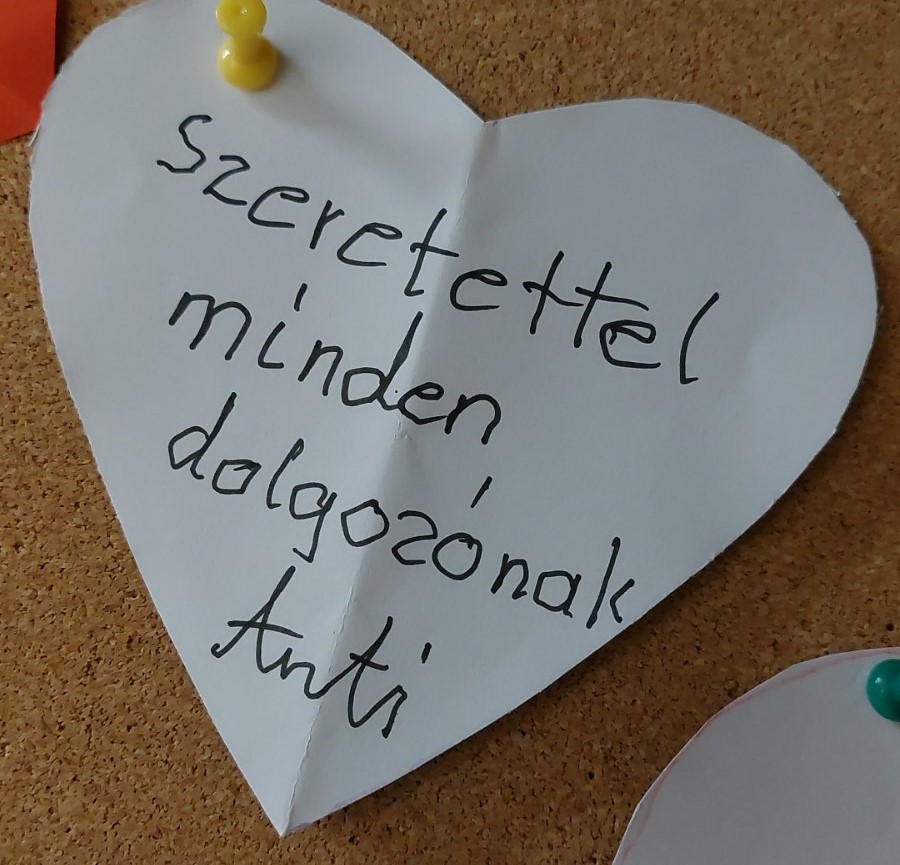 Szeretettel
minden
dolgozónak
Anti